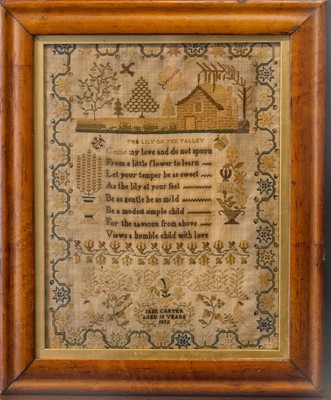 THE LILY OF THE VALLEY
Come my love and do not spurn
From a little flower to learn
Let your temper be as sweet
As the lily at your feet
Be as gentle be as mild
Be a modest simple child
For the saviour from above
Views a humble child with love
JANE CARTER
AGED 10 YEARS